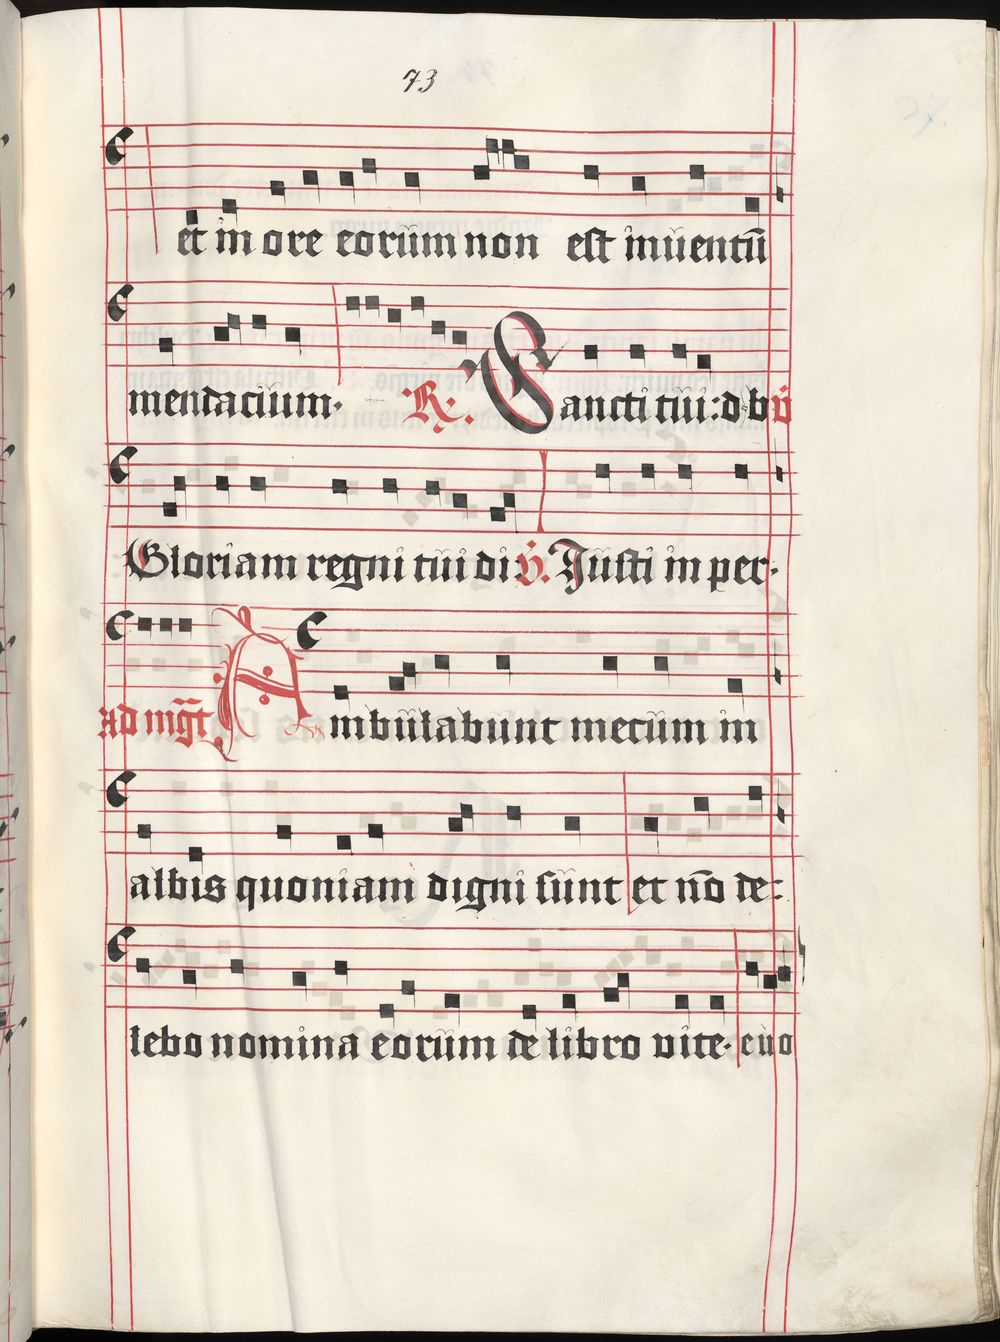 73
et in ore eorum non est inuentū
mendacium. R. Sancti tui: d. b. v̄
Gloriam regni tui di V. Justi in per-
ad mgt Ambulabunt mecum in
albis quoniam digni sunt et nō de-
lebo nomina eorum de libro vite. euo